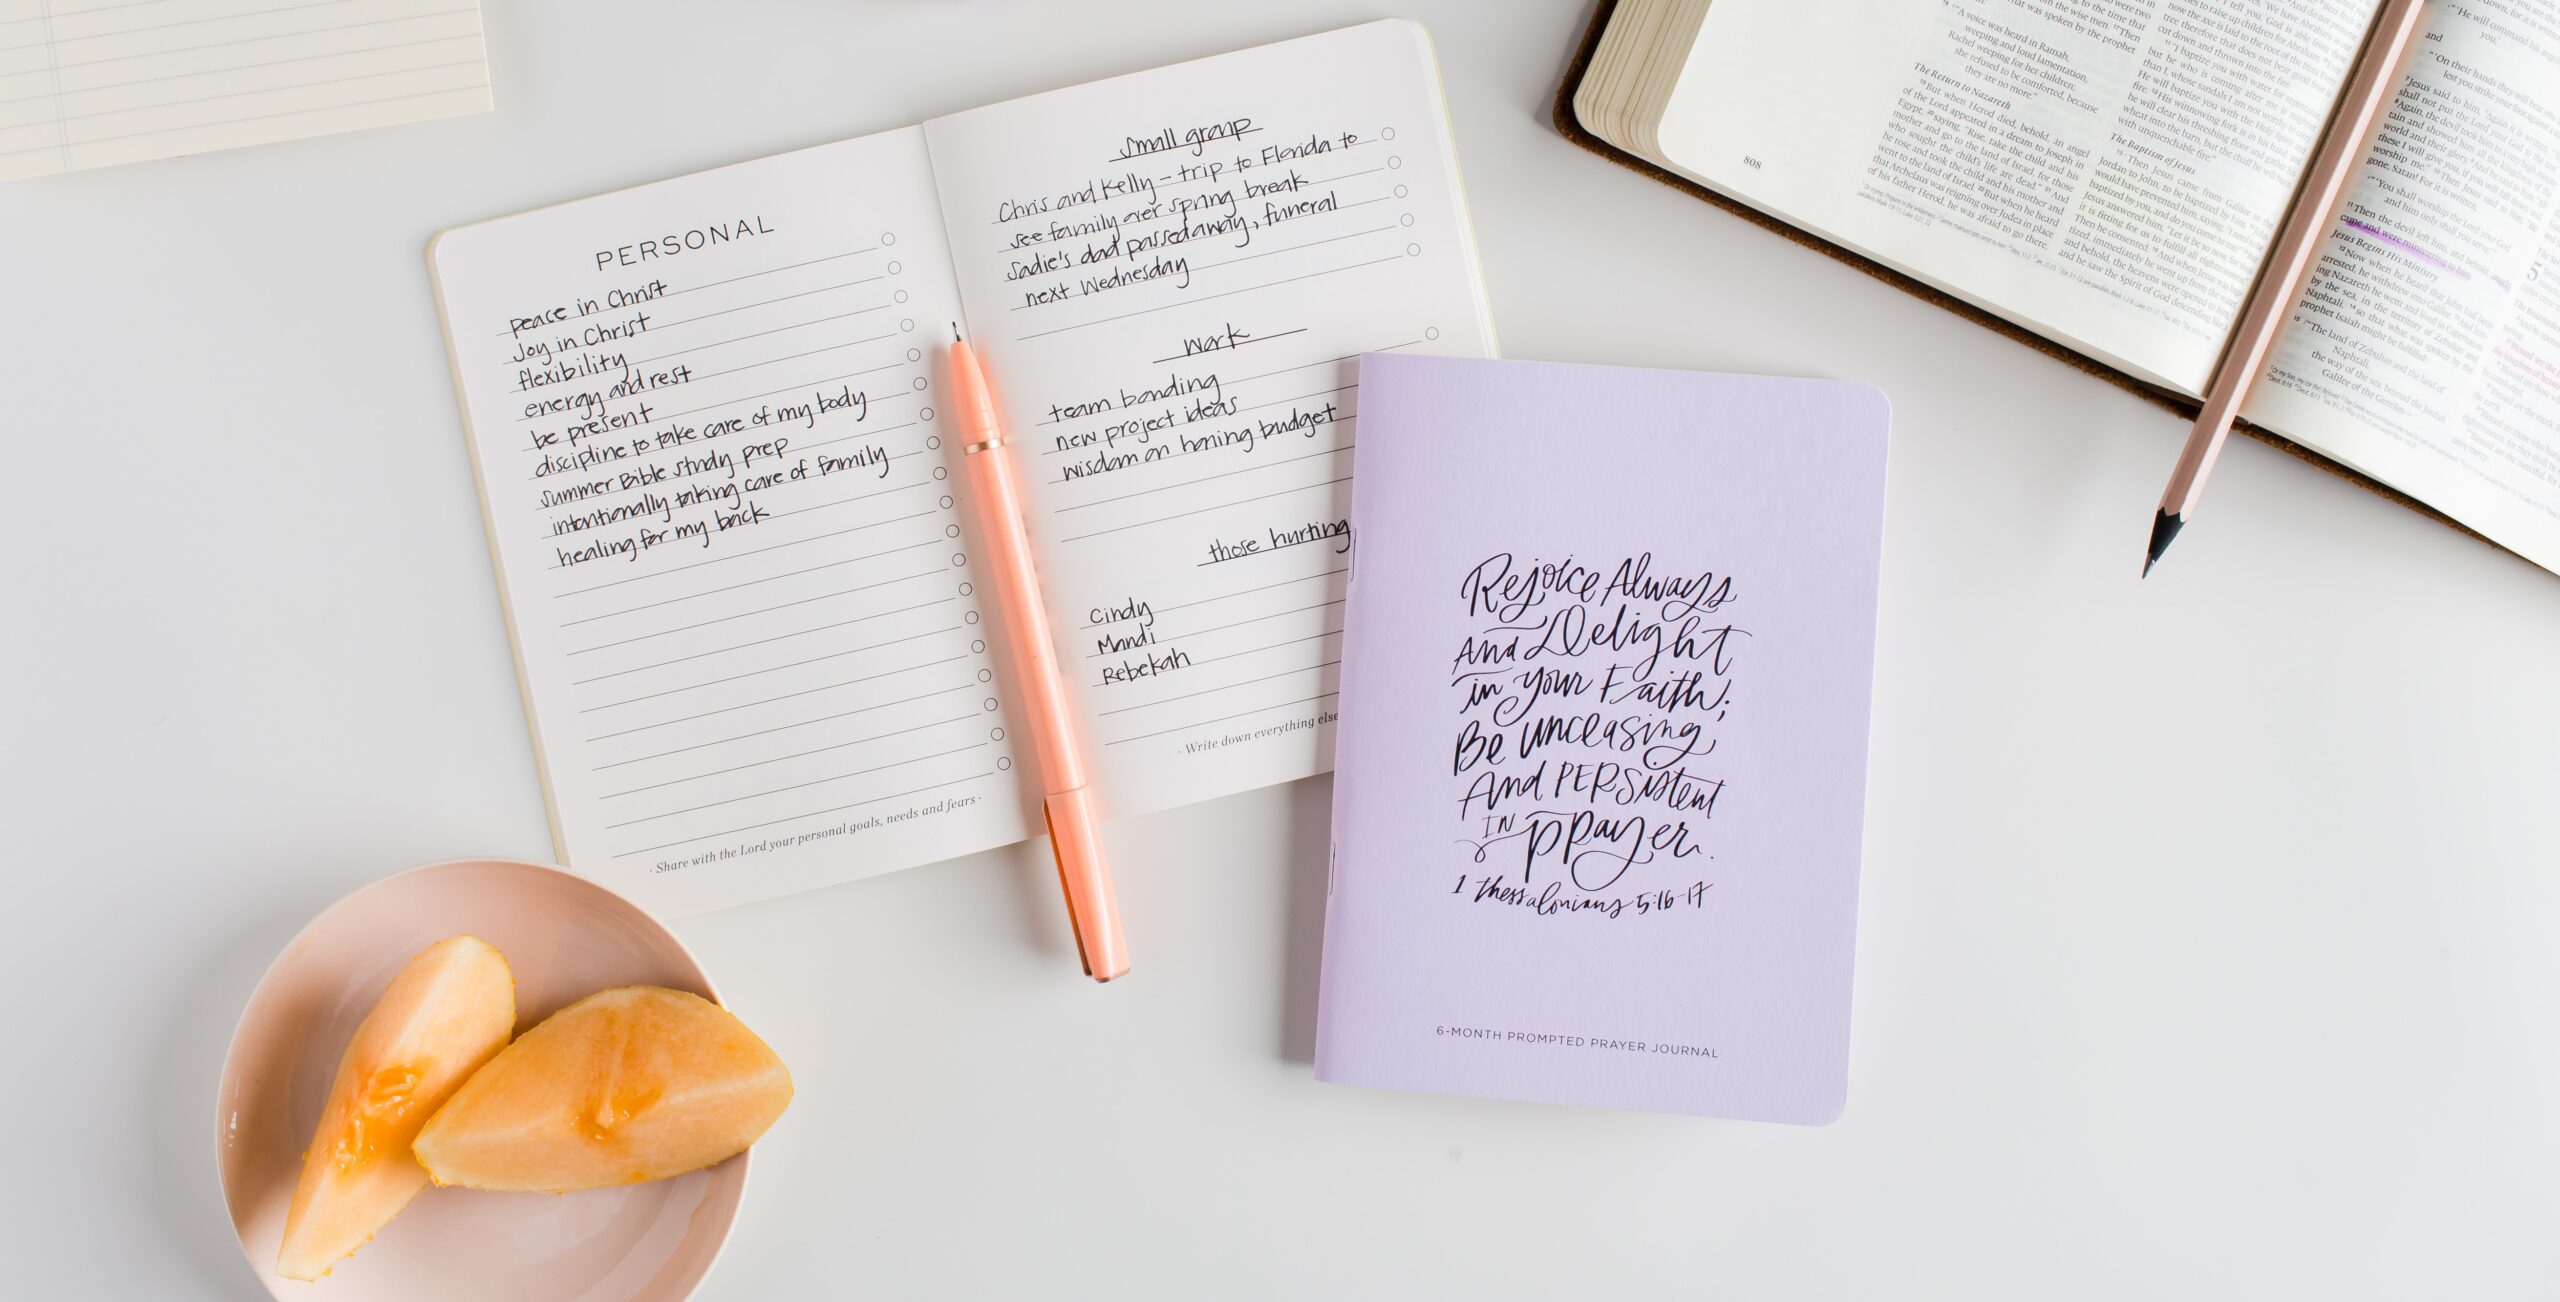 PERSONAL
peace in Christ
Joy in Christ
flexibility
energy and rest
be present
discipline to take care of my body
summer Bible study prep
intentionally taking care of family
healing for my back
· Share with the Lord your personal goals, needs and fears ·
small group
Chris and Kelly – trip to Florida to
see family over spring break
Sadie's dad passed away, funeral
next Wednesday
work
team bonding
new project ideas
wisdom on honing budget
those hurting
Cindy
Mandi
Rebekah
· Write down everything else
Rejoice Always
And Delight
in your Faith;
Be unceasing
And PERSistent
IN prayer.
1 Thessalonians 5:16-17
6-MONTH PROMPTED PRAYER JOURNAL
that was spoken by the prophet
"A voice was heard in Ramah,
weeping and loud lamentation,
Rachel weeping for her children;
she refused to be comforted, because
they are no more."
The Return to Nazareth
19 But when Herod died, behold, an angel
of the Lord appeared in a dream to Joseph in
Egypt, 20 saying, "Rise, take the child and his
mother and go to the land of Israel, for those
who sought the child's life are dead." 21 And
he rose and took the child and his mother and
went to the land of Israel. 22 But when he heard
that Archelaus was reigning over Judea in place
of his father Herod, he was afraid to go there,
808
cut down and thrown into the fire.
11 "I baptize you with water for repentance,
but he who is coming after me is mightier
than I, whose sandals I am not worthy to
He will baptize you with the Holy Spirit and
fire. 12 His winnowing fork is in his hand, and
he will clear his threshing floor and gather his
wheat into the barn, but the chaff he will burn
with unquenchable fire."
The Baptism of Jesus
13 Then Jesus came from Galilee to the
Jordan to John, to be baptized by him. 14 John
would have prevented him, saying, "I need to be
baptized by you, and do you come to me?" 15 But
Jesus answered him, "Let it be so now, for thus
it is fitting for us to fulfill all righteousness."
Then he consented. 16 And when Jesus was
baptized, immediately he went up from the water,
and behold, the heavens were opened to him,
and he saw the Spirit of God descending like
"'He will command his angels
and
"'On their hands they will bear you
lest you strike your foot against
7 Jesus said to him, "Again it is written,
shall not put the Lord your God
8 Again, the devil took him to a very high
tain and showed him all the kingdoms
world and their glory.
these I will give you, if you will fall down
worship me." 10 Then Jesus said
gone, Satan! For it is written,
"'You shall worship the Lord your God
and him only shall you serve.'"
11 Then the devil left him, and behold, angels
came and were ministering to him.
Jesus Begins His Ministry
12 Now when he heard that John had been
arrested, he withdrew into Galilee. 13 And
ing Nazareth he went and lived in Capernaum
by the sea, in the territory of Zebulun and
Naphtali, 14 so that what was spoken by the
prophet Isaiah might be fulfilled:
15 "The land of Zebulun and the land of
Naphtali,
the way of the sea, beyond the Jordan,
Galilee of the Gentiles—
5